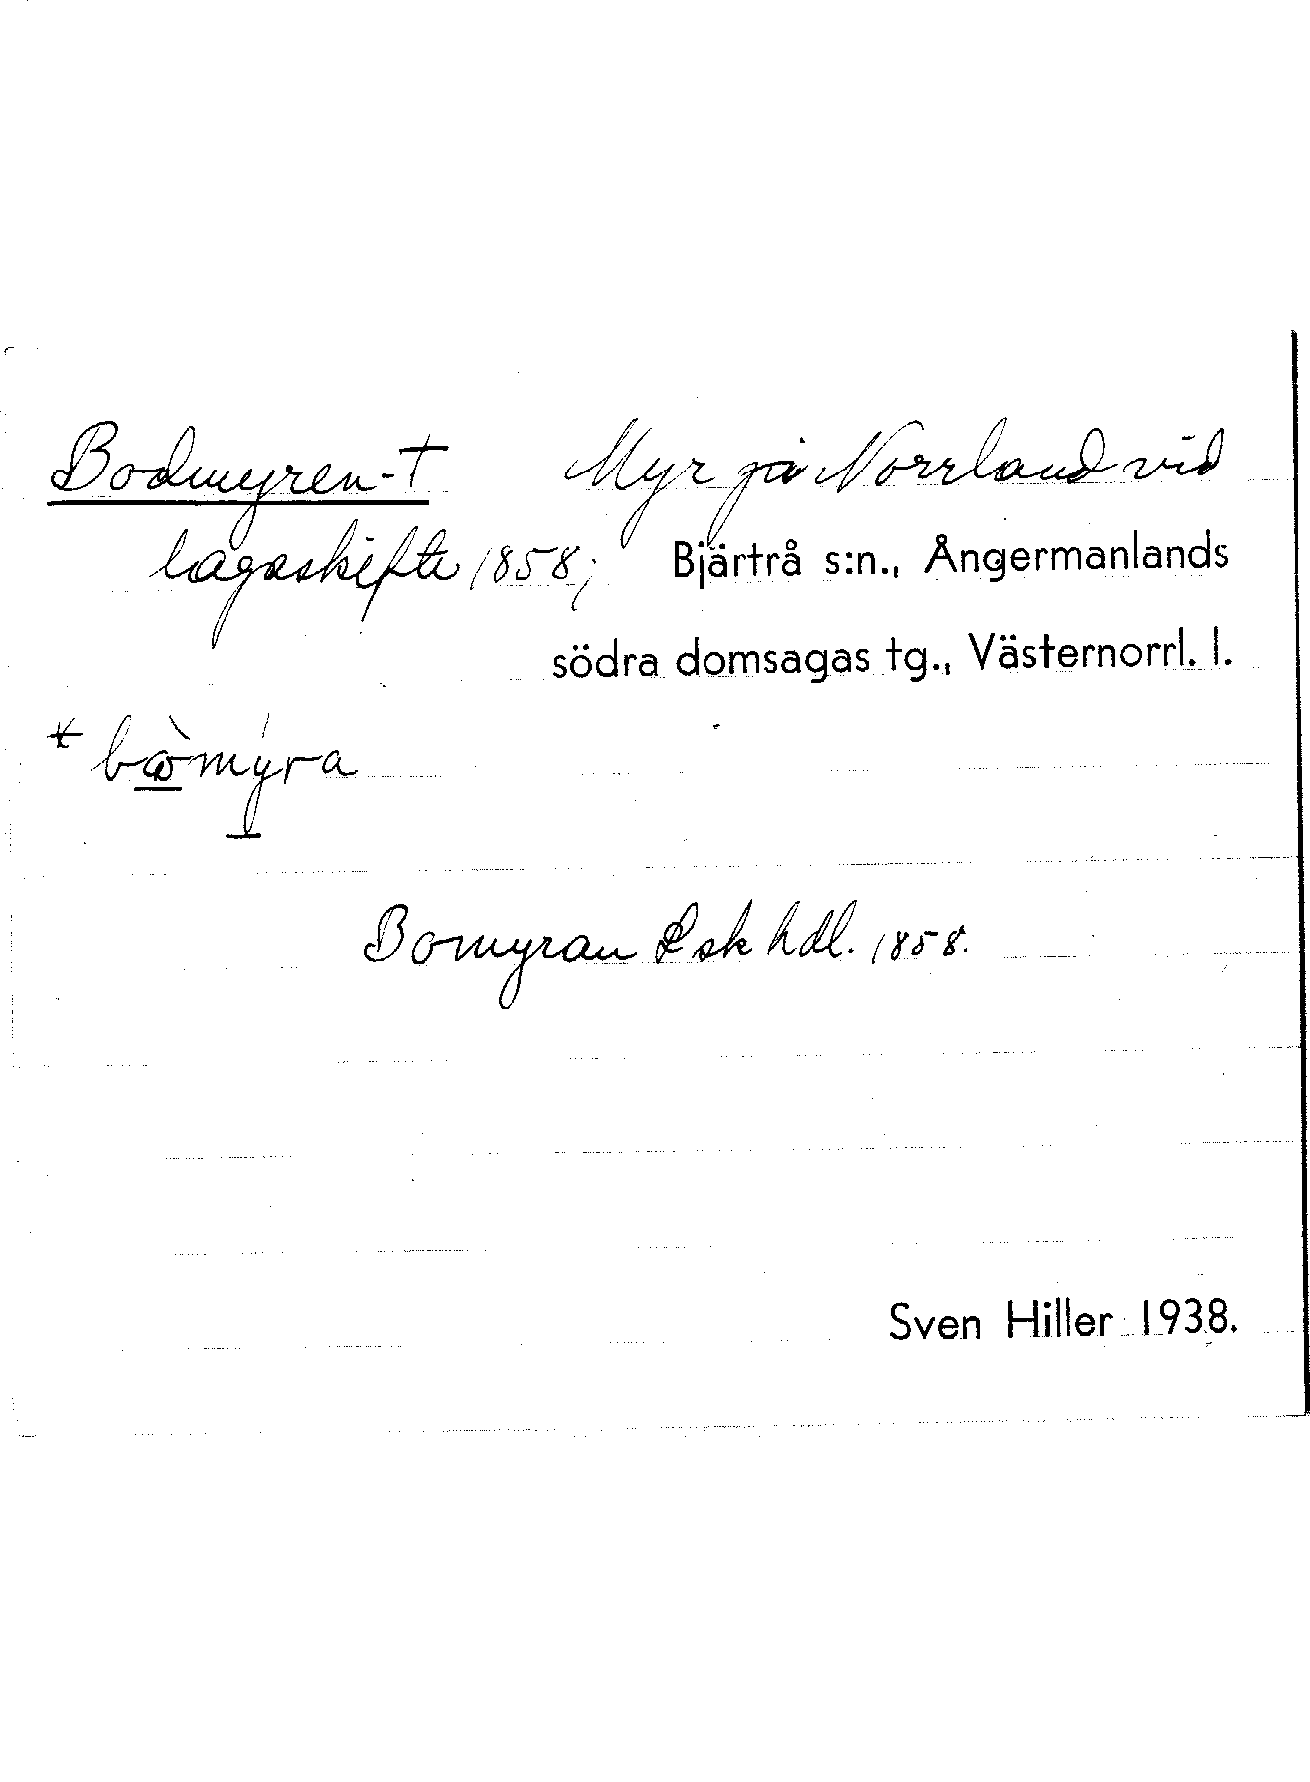 Bodmyren-† Myr på Norrland vid
lagaskifte 1858; Bjärtrå s:n., Ångermanlands
södra domsagas tg., Västernorrl. l.
myra
Bomyran Lsk hdl. 1858.
Sven Hiller 1938.